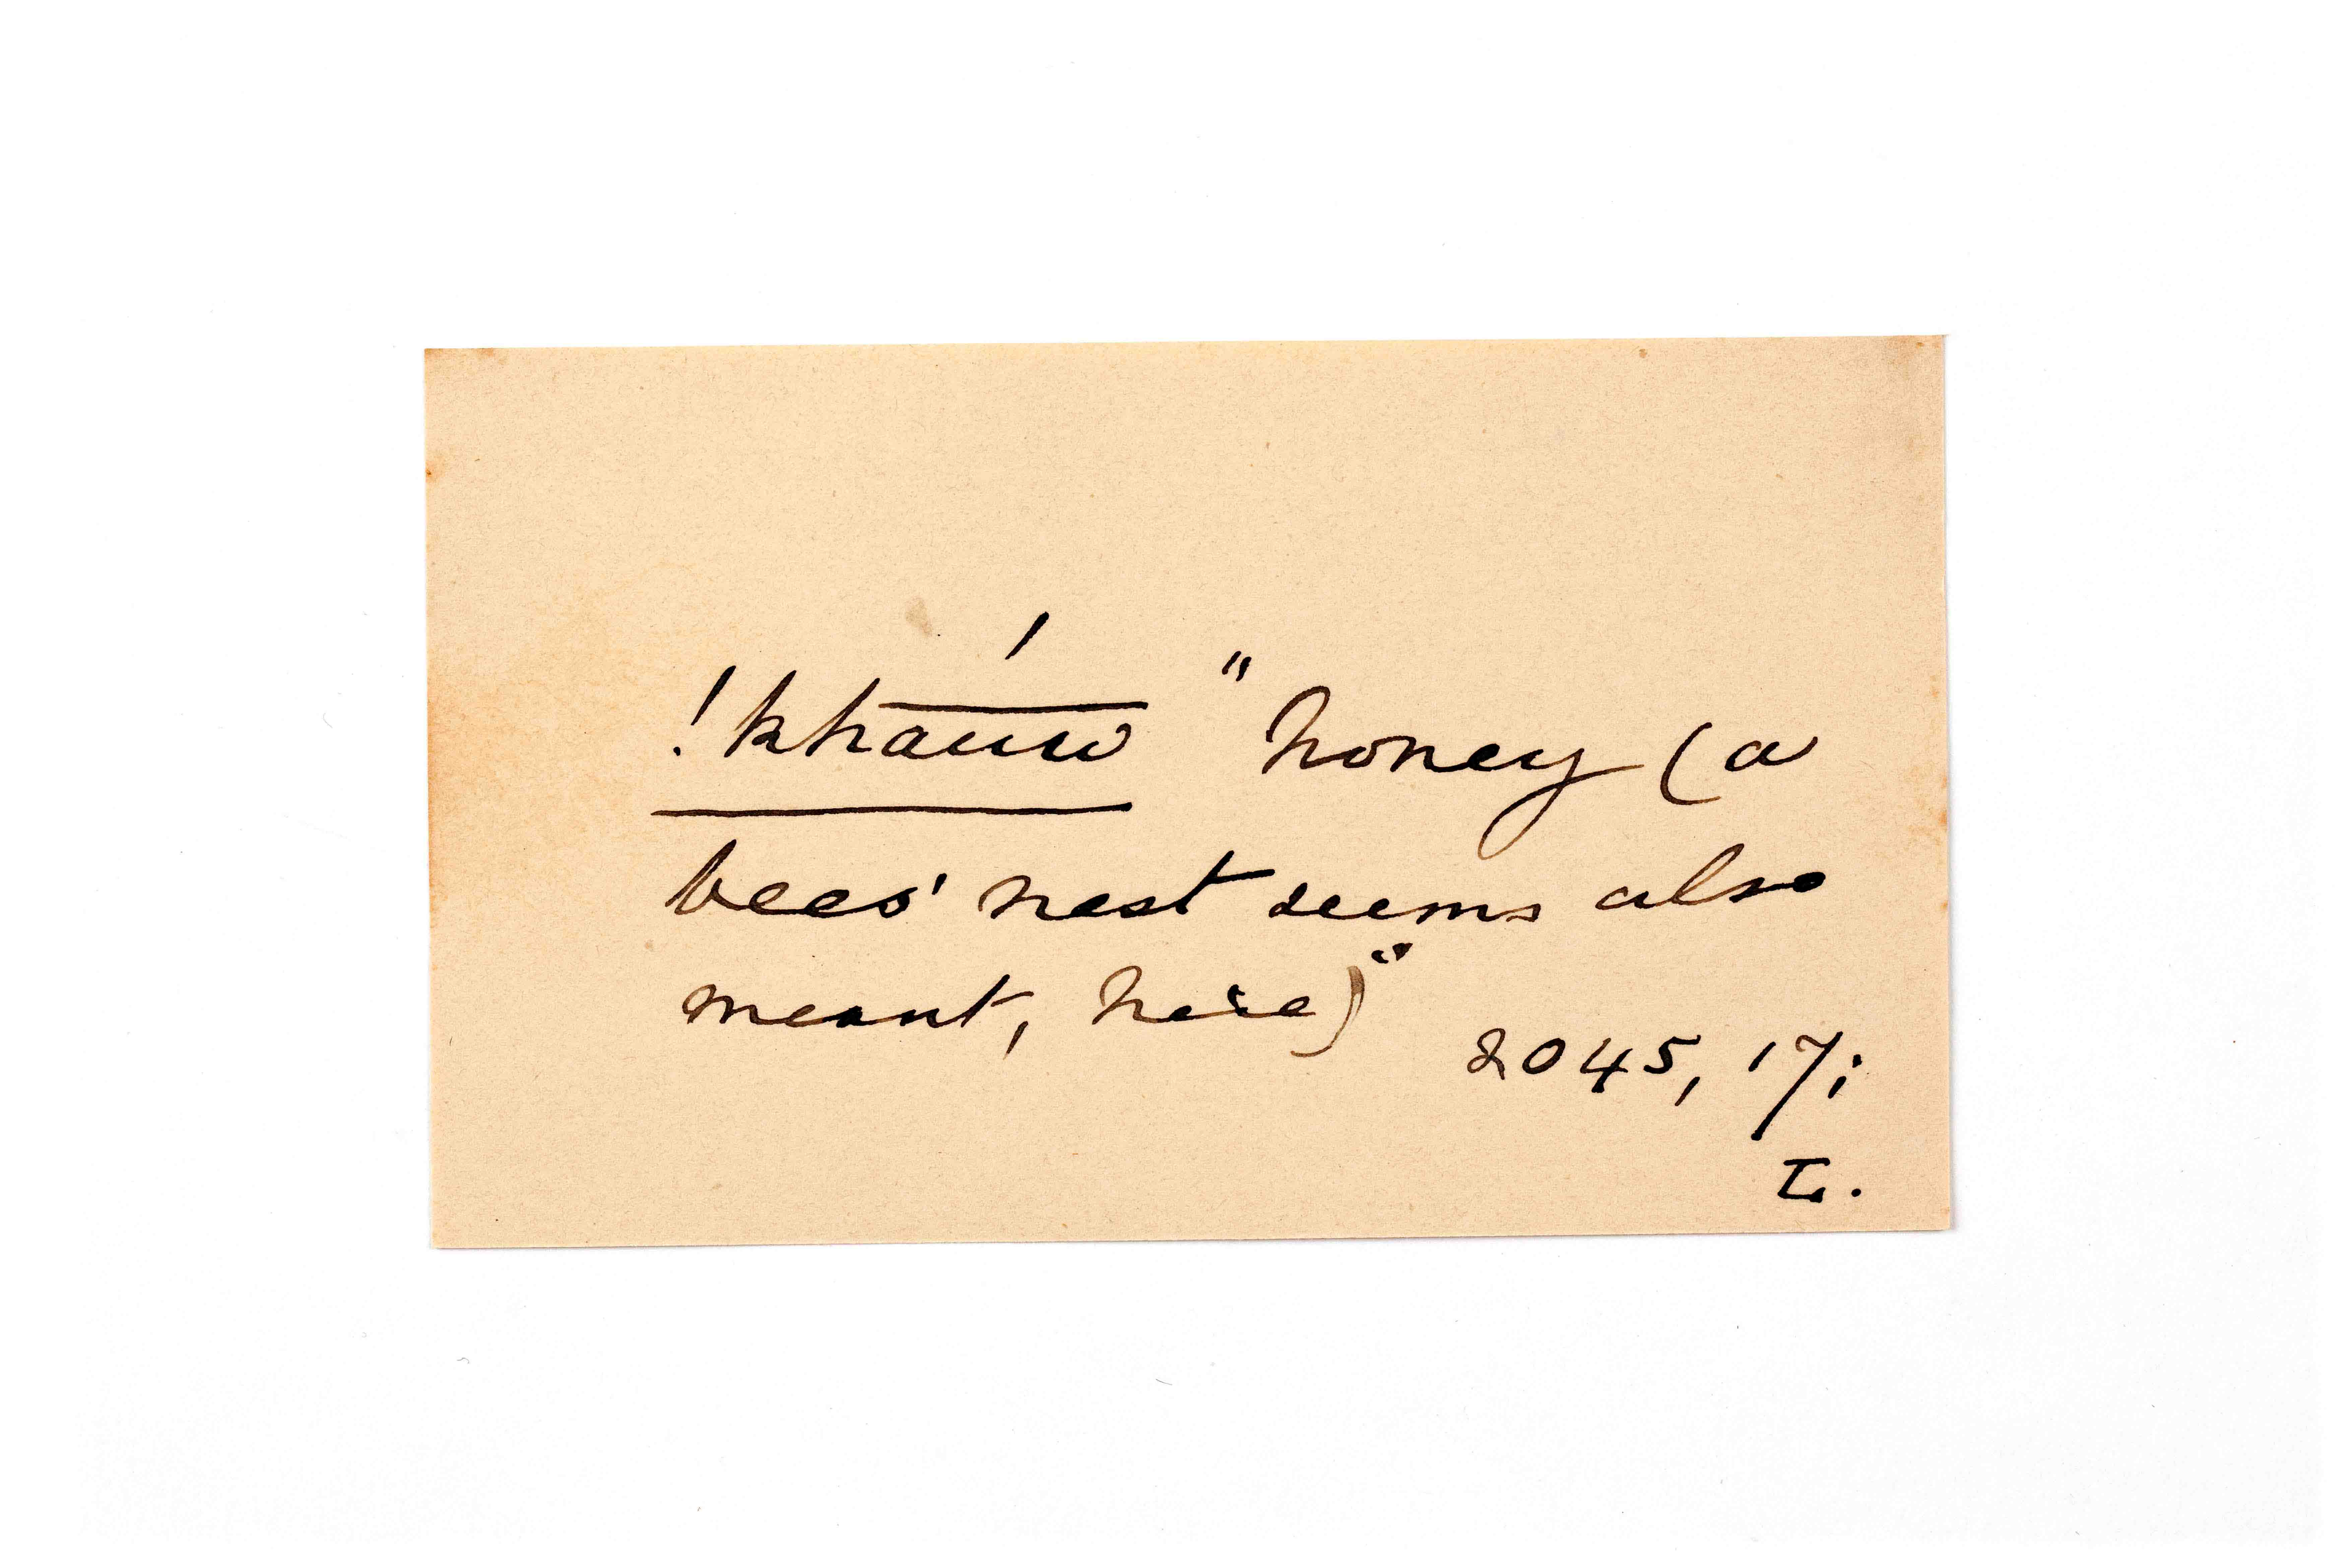 !kháuw "honey (a
bees' nest seems also
meant, here)"
2045, 17;
L.